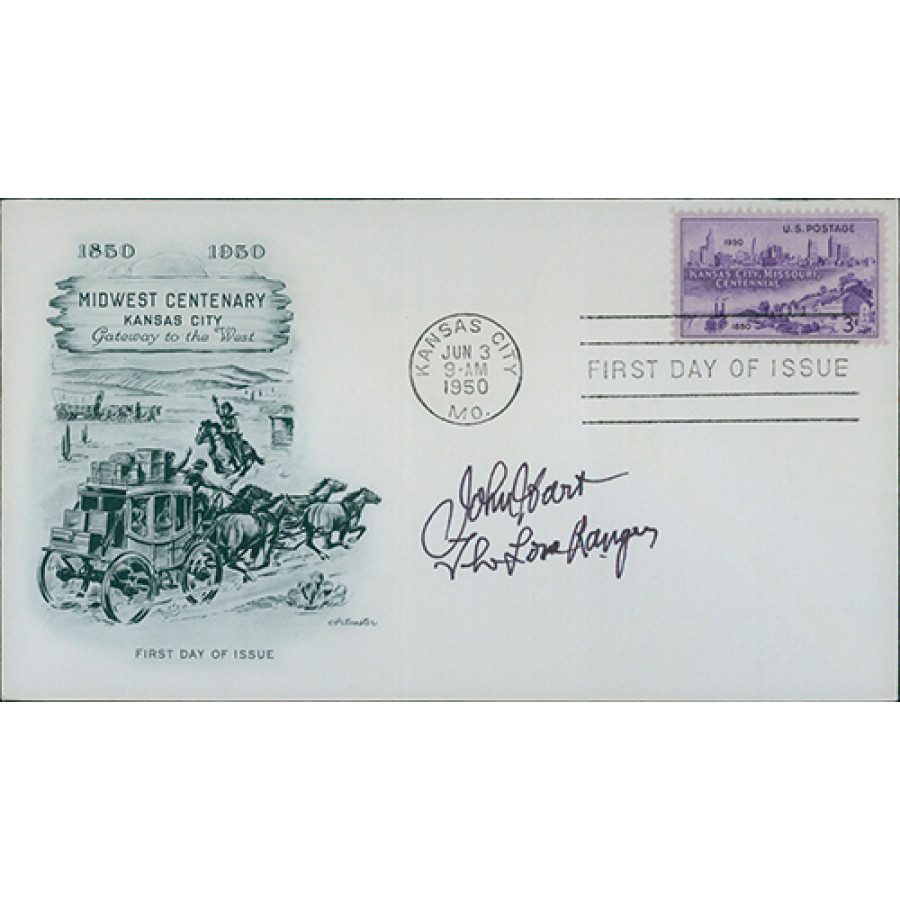 1850 1950
MIDWEST CENTENARY
KANSAS CITY
Gateway to the West
Artmaster
FIRST DAY OF ISSUE
KANSAS CITY
JUN 3
9-AM
1950
MO.
U.S. POSTAGE
1950
KANSAS CITY, MISSOURI,
CENTENNIAL
1850
3¢
FIRST DAY OF ISSUE
John Hart
The Lone Ranger